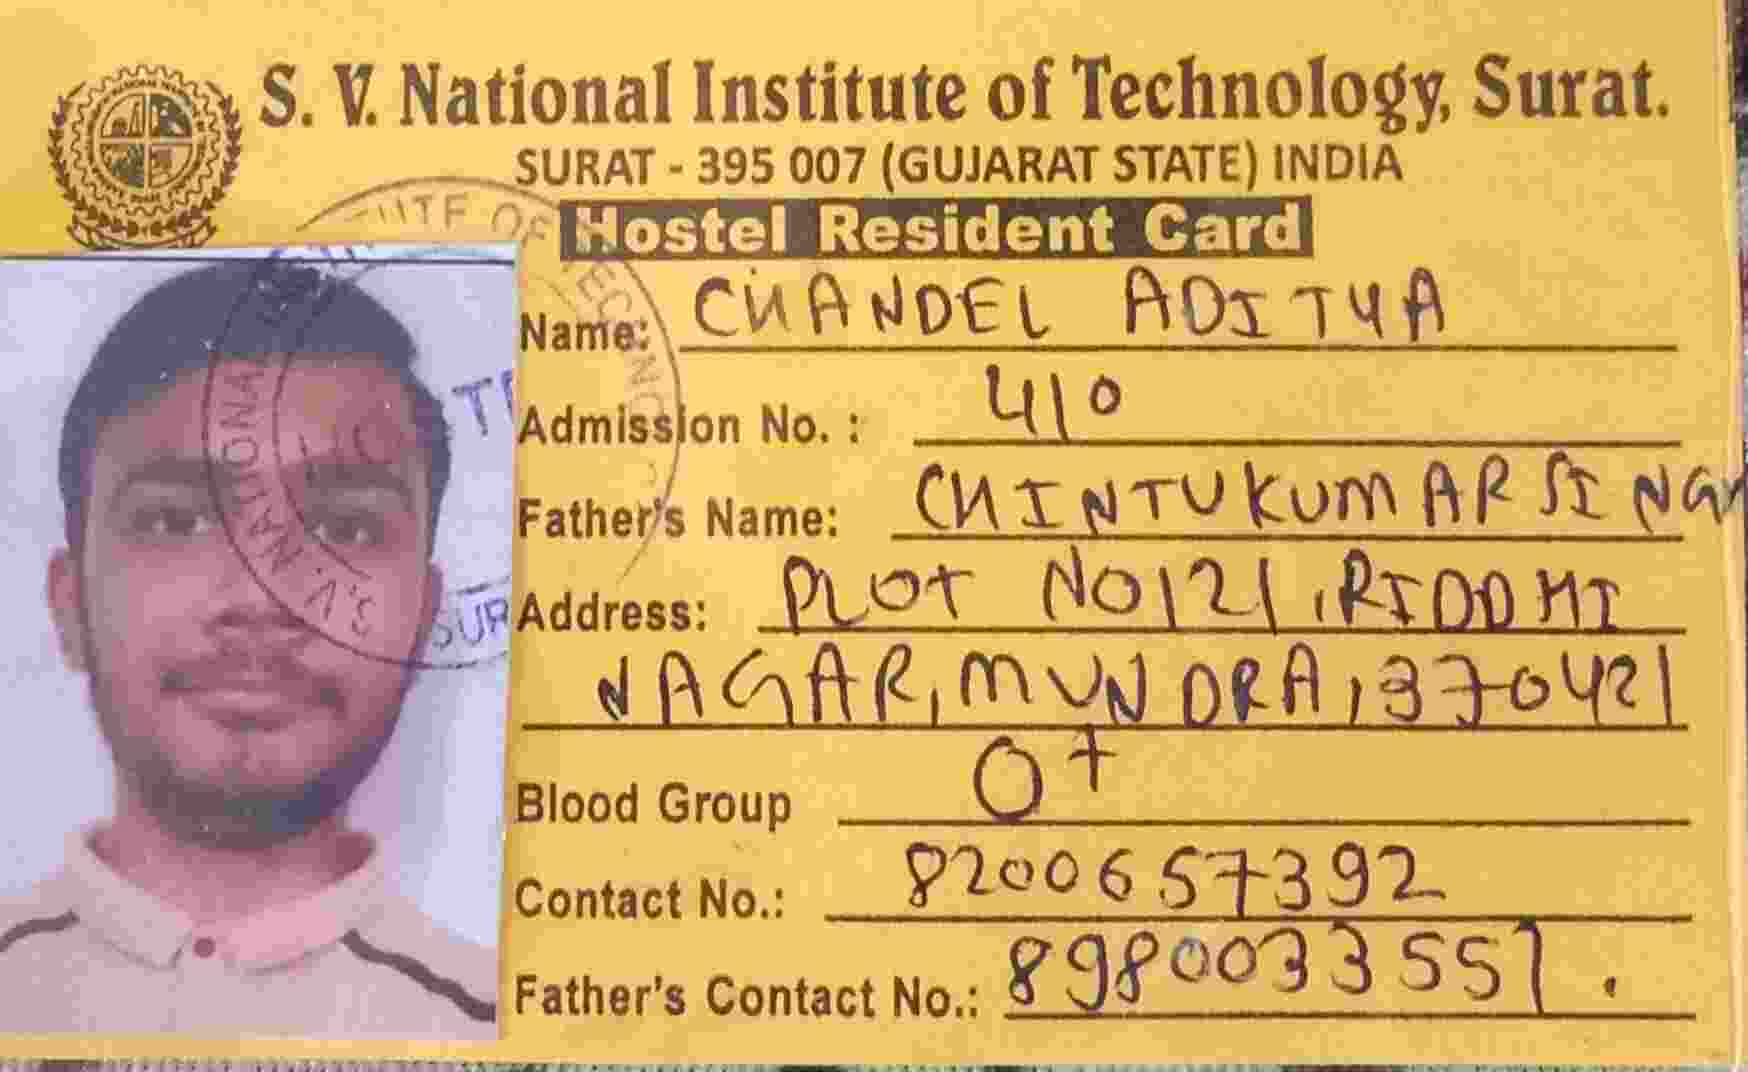 S. V. National Institute of Technology, Surat.
SURAT - 395 007 (GUJARAT STATE) INDIA
Hostel Resident Card
Name: CHANDEL ADITYA
Admission No. : 410
Father's Name: CHINTUKUMAR SINGH
Address: PLOT NO 121, RIDDHI
NAGAR, MUNDRA, 370421
Blood Group O+
Contact No.: 8200657392
Father's Contact No.: 8980033551.
S.V. NATIONAL INSTITUTE OF TECHNO
SUR